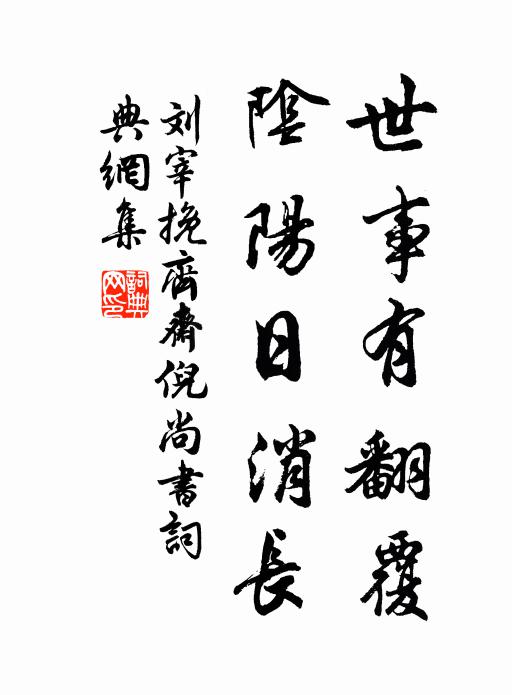 世事有翻覆
陰陽日消長
刘宰挽齊齋倪尚書詞
典網集
詞典網印